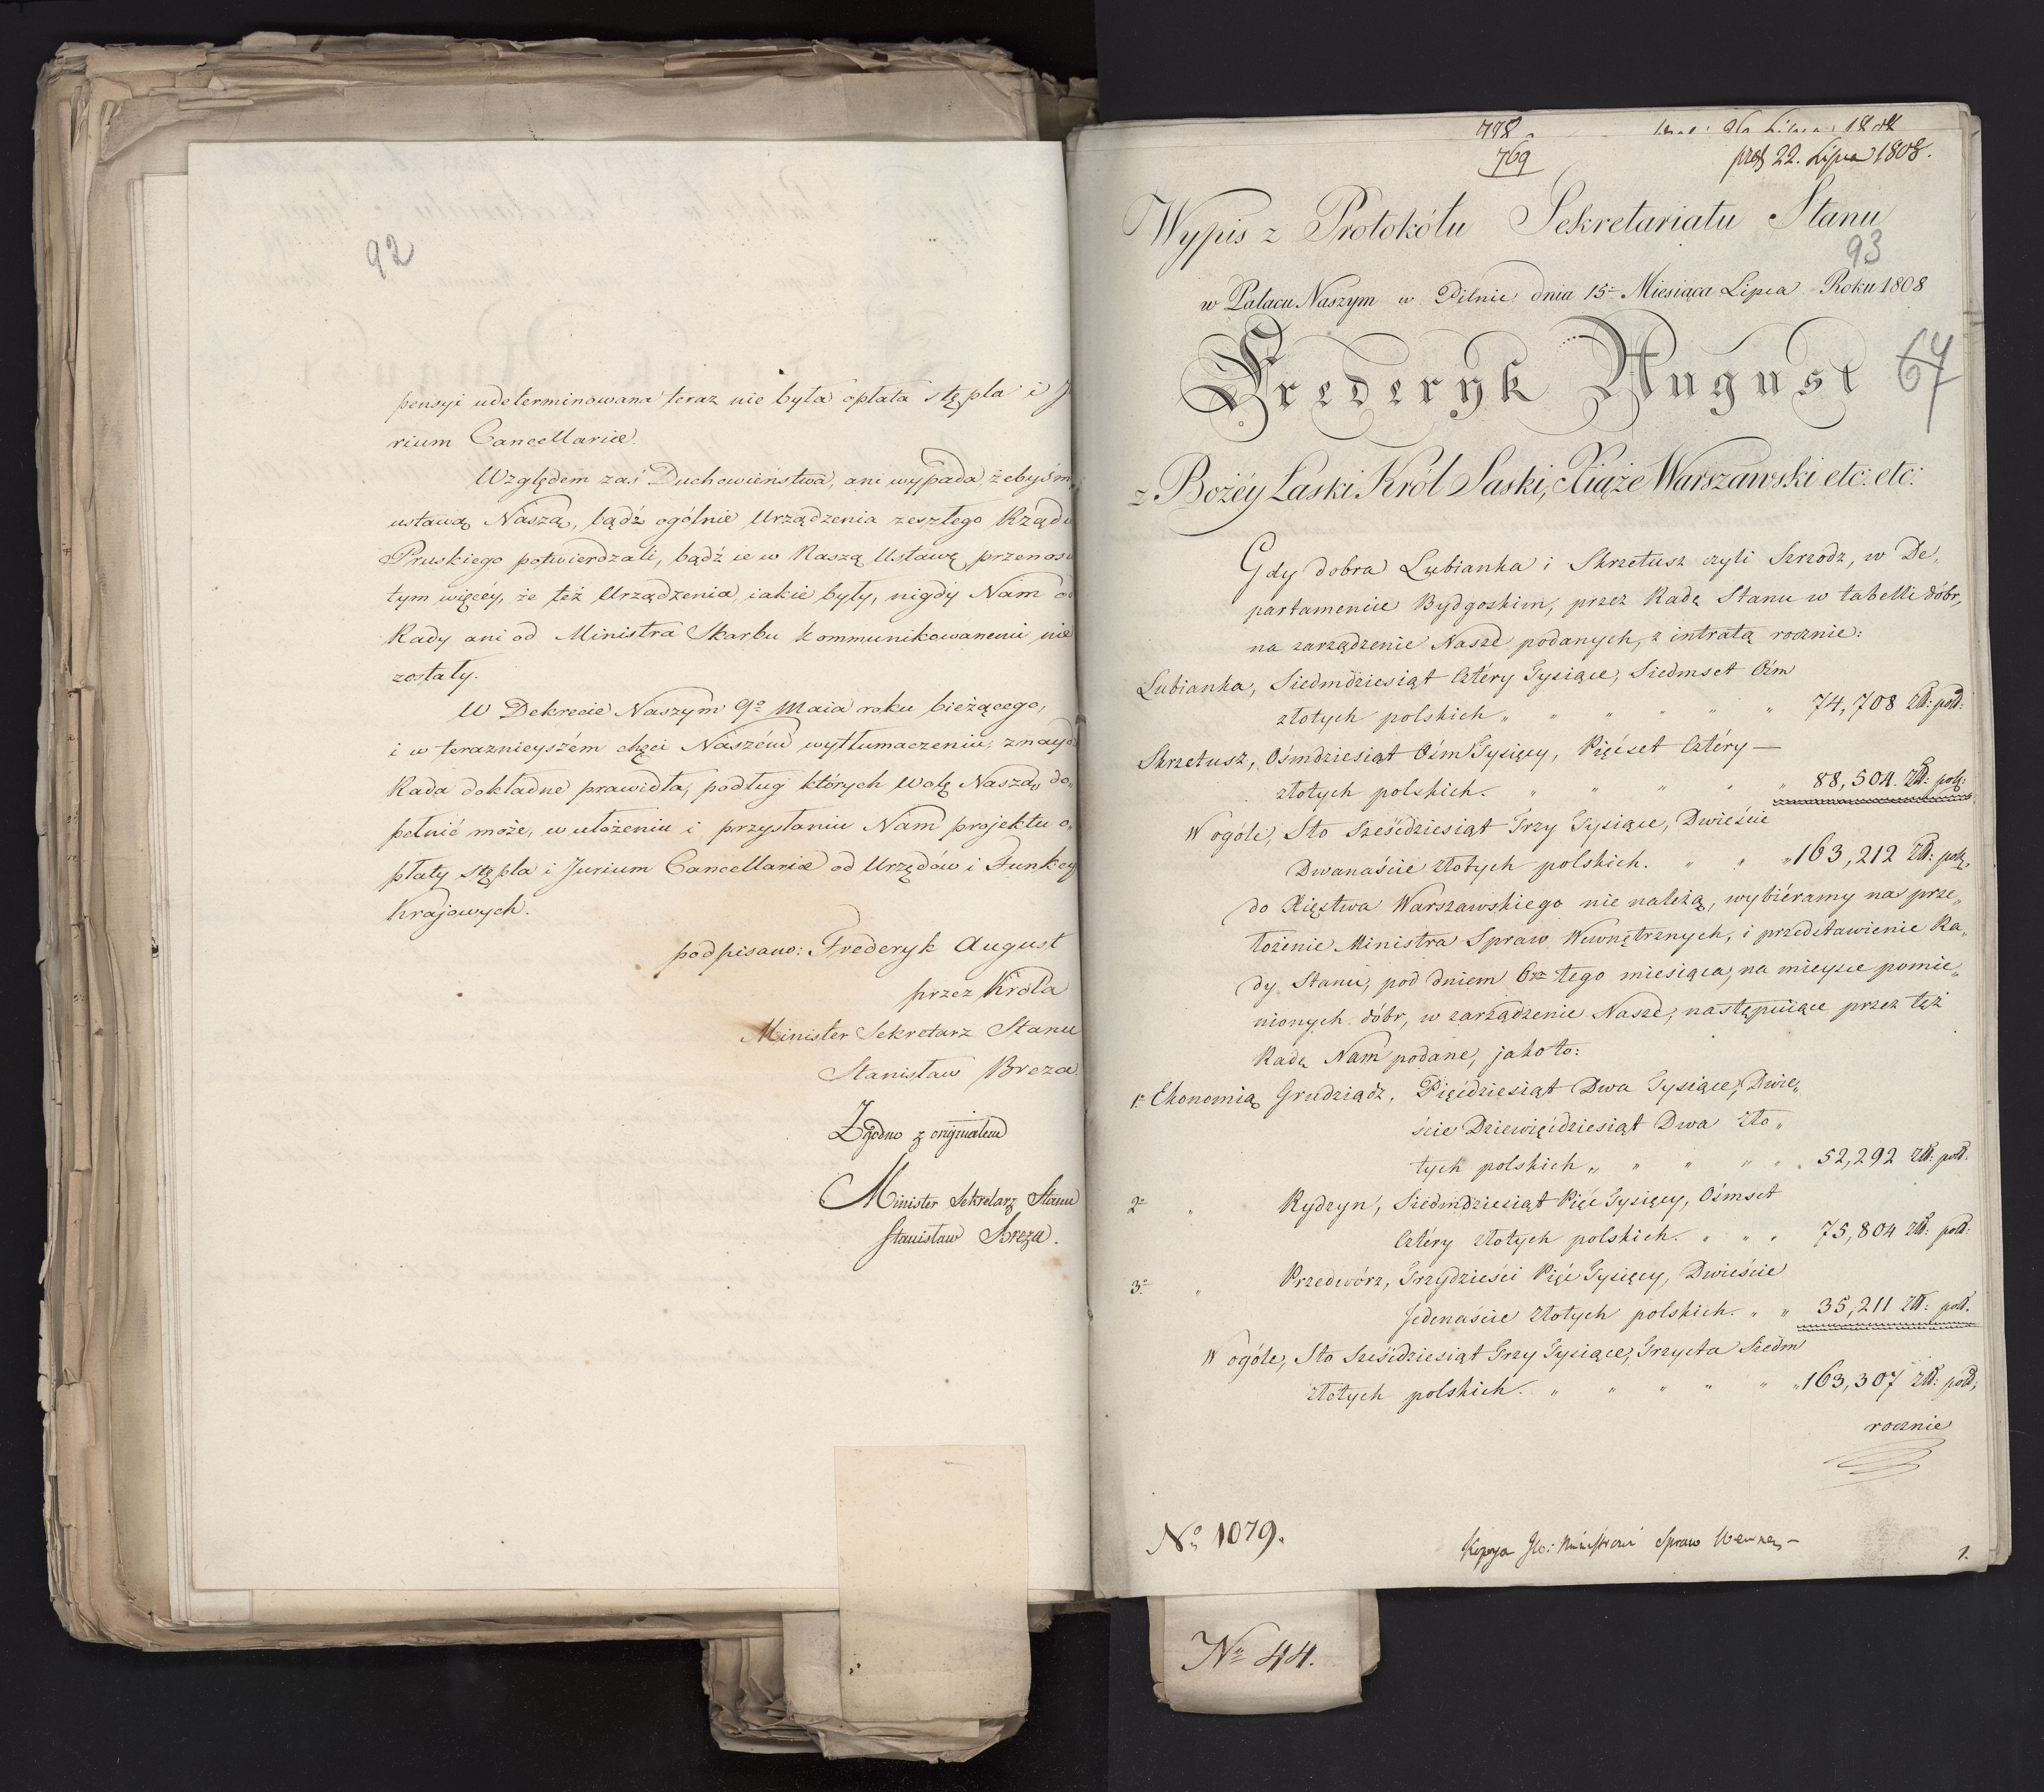 92
pensyi udeterminowana teraz nie była opłata stępla i
rium Cancellariæ.
Względem zaś Duchowieństwa, ani wypada, żebyśm
ustawą Naszą, bądź ogólnie Urządzenia zeszłego Rządu
Pruskiego potwierdzali, bądź ie w Naszą Ustawę przenos
tym więcéy, że też Urządzenia, iakie były, nigdy Nam o
Rady ani od Ministra Skarbu kommunikowanemi nie
zostały.
W Dekrecie Naszym 9º Maia roku bieżącego,
i w teraznieyszém chęci Naszéw wytłumaczeniu, znayd
Rada dokładne prawidła, podług których Wolę Naszą do„
pełnić może, w ułożeniu i przysłaniu Nam projektu o„
płaty stępla i Jurium Cancellariæ od Urzędów i Funkcy
Krajowych.
podpisano: Frederyk August
przez Króla
Minister Sekretarz Stanu
Stanisław Breza.
Zgodno z originałem
Minister Sekretarz Stanu
Stanisław Breza.
798
26 Lipca 1808
769
prꝫ 22. Lipca 1808.
Wypis z Protokółu Sekretariatu Stanu
93
w Pałacu Naszym w Pilnic dnia 15º Miesiąca Lipca Roku 1808
Frederyk August
67
z Bożéy Łaski Król Saski, Xiąże Warszawski etc: etc:
Gdy dobra Lubianka i Skrzetusz czyli Szrzodz, w De„
partamencie Bydgoskim, przez Radę Stanu w tabelli dóbr,
na zarządzenie Nasze podanych, z intratą rocznie:
Lubianka, Siedmdziesiąt Cztéry Tysiące, Siedmset Ośm
złotych polskich „ „ „ „ „ „ 74,708 Złł: poll:
Skrzetusz, Ośmdziesiąt Ośm Tysięcy, Pięćset Cztéry —
złotych polskich. „ „ „ „ „ 88,504. Złł: pol:
W ogóle, Sto Sześćdziesiąt Trzy Tysiące, Dwieście
Dwanaście złotych polskich. „ „ „ 163,212 Złł: pol:
do Xięstwa Warszawskiego nie należą, wybiéramy na prze„
łożenie Ministra Spraw Wewnętrznych, i przedstawienie Ra„
dy Stanu, pod dniem 6ᵐ tego miesiąca, na mieysce pomie„
nionych dóbr, w zarządzenie Nasze, następuiące przez też
Radę Nam podane, jako to:
1º Ekonomią Grudziądz, Pięćdziesiąt Dwa Tysiące, Dwie„
ście Dziewięćdziesiąt Dwa zło„
tych polskich „ „ „ „ „ 52,292 Złł: poll.
2º „ Rydzyn, Siedmdziesiąt Pięć Tysięcy, Ośmset
Cztéry złotych polskich. „ „ „ 75,804 Złł: poll:
3º „ Przedwórz, Trzydzieści Pięć Tysięcy, Dwieście
Jedenaście złotych polskich. „ „ 35,211 Złł: poll.
W ogóle, Sto Sześćdziesiąt Trzy Tysiące, Trzysta Siedm
złotych polskich. „ „ „ „ „ „ 163,307 Złł: poll;
rocznie
Nº 1079.
Kopya JW: Ministrowi Spraw Wewnę—
1.
Nº 44.